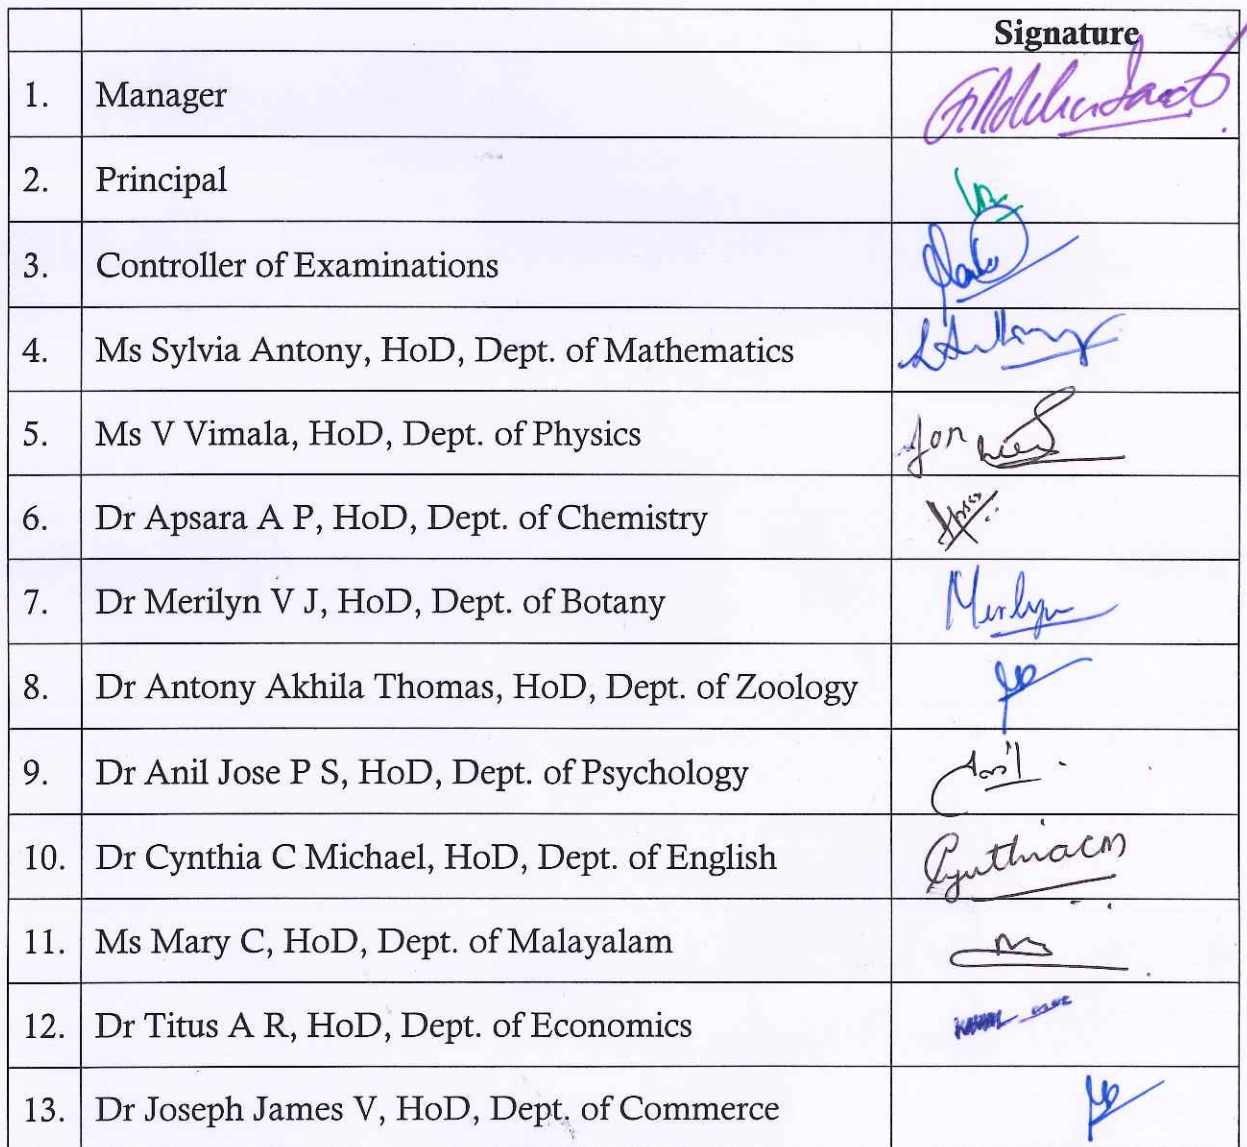 Signature
1. Manager
2. Principal
3. Controller of Examinations
4. Ms Sylvia Antony, HoD, Dept. of Mathematics
5. Ms V Vimala, HoD, Dept. of Physics
6. Dr Apsara A P, HoD, Dept. of Chemistry
7. Dr Merilyn V J, HoD, Dept. of Botany Merilyn
8. Dr Antony Akhila Thomas, HoD, Dept. of Zoology
9. Dr Anil Jose P S, HoD, Dept. of Psychology Anil
10. Dr Cynthia C Michael, HoD, Dept. of English Cynthia CM
11. Ms Mary C, HoD, Dept. of Malayalam
12. Dr Titus A R, HoD, Dept. of Economics
13. Dr Joseph James V, HoD, Dept. of Commerce